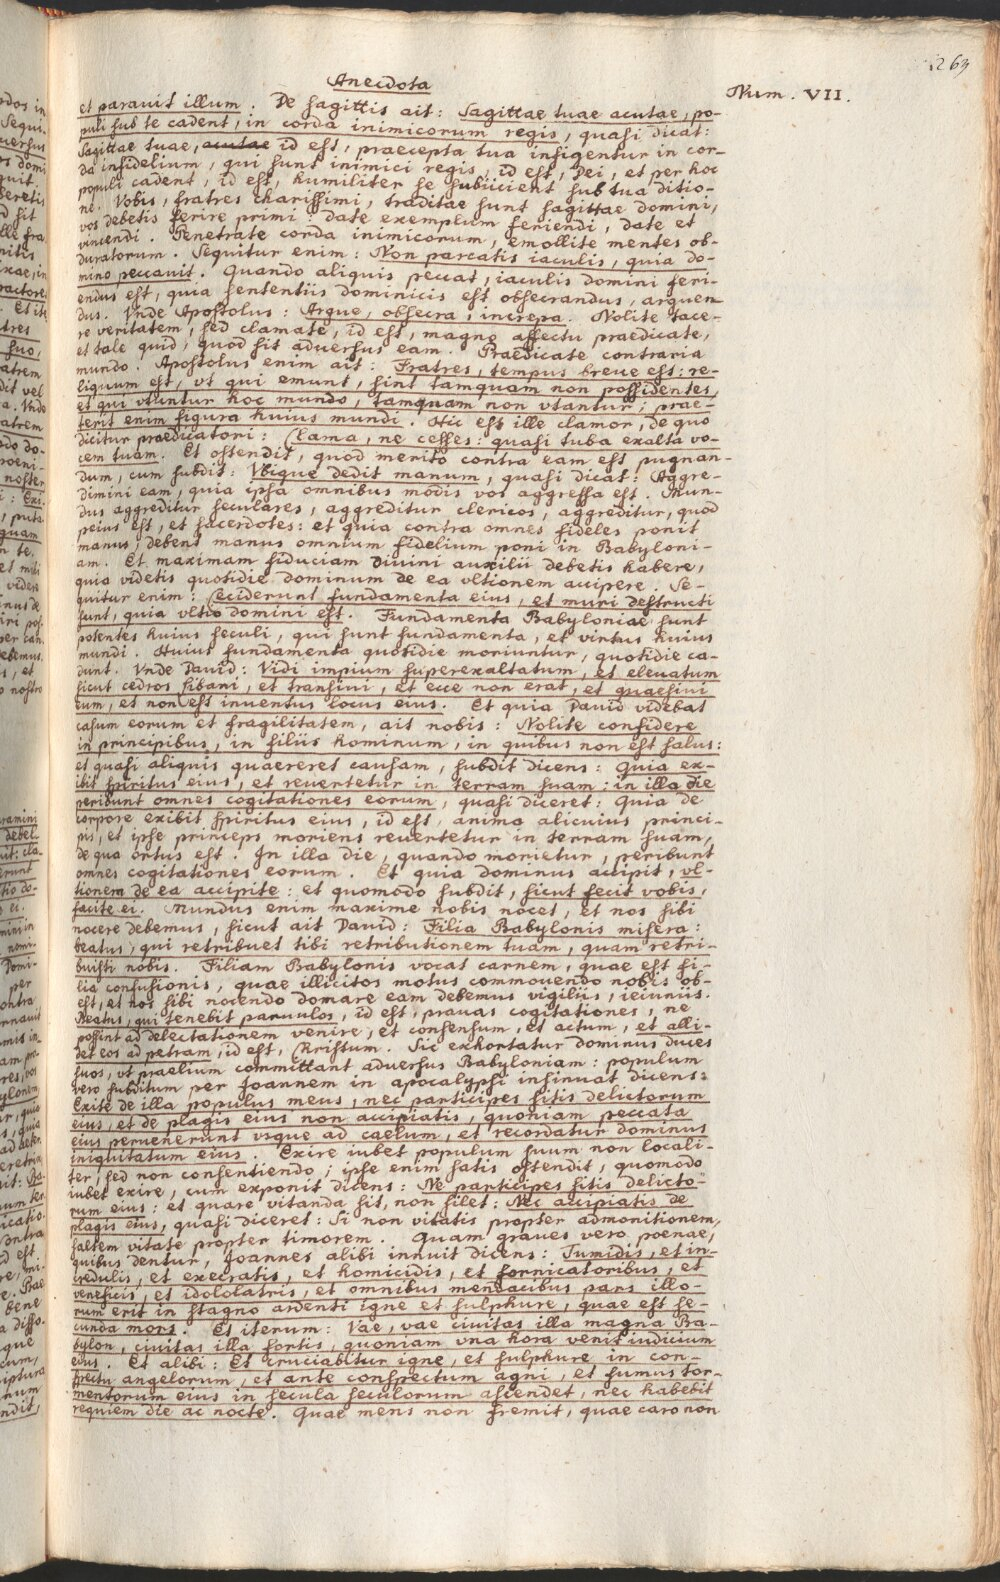 263
Anecdota
Num. VII.
et parauit illum. De sagittis ait: Sagittae tuae acutae, po-
puli sub te cadent, in corda inimicorum regis, quasi dicat:
Sagittae tuae, acutae id est, praecepta tua insigentur in cor-
da infidelium, qui sunt inimici regis, id est, Dei, et per hoc
populi cadent, id est, humiliter se subiicient sub tua ditio-
ne. Vobis, fratres charissimi, traditae sunt sagittae domini,
vos debetis ferire primi: date exemplum feriendi, date et
vincendi. Penetrate corda inimicorum, emollite mentes ob-
duratorum. Sequitur enim: Non parcatis iaculis, quia do-
mino peccauit. Quando aliquis peccat, iaculis domini feri-
endus est, quia sententiis dominicis est obsecrandus, arguen
dus. Vnde Apostolus: Argue, obsecra, increpa. Nolite tace-
re veritatem, sed clamate, id est, magno affectu praedicate,
et tale quid, quod sit aduersus eam. Praedicate contraria
mundo. Apostolus enim ait: Fratres, tempus breue est: re-
liquum est, vt qui emunt, sint tamquam non possidentes,
et qui vtuntur hoc mundo, tamquam non vtantur; prae-
terit enim figura huius mundi. Hic est ille clamor, de quo
dicitur praedicatori: Clama, ne cesses: quasi tuba exalta vo-
cem tuam. Et ostendit, quod merito contra eam est pugnan-
dum, cum subdit: Vbique dedit manum, quasi dicat: Aggre-
dimini eam, quia ipsa omnibus modis vos aggressa est. Mun-
dus aggreditur seculares, aggreditur clericos, aggreditur, quod
peius est, et sacerdotes: et quia contra omnes fideles ponit
manus, debent manus omnium fidelium poni in Babyloni-
am. Et maximam fiduciam diuini auxilii debetis habere,
quia videtis quotidie dominum de ea vltionem accipere. Se-
quitur enim: Ceciderunt fundamenta eius, et muri destructi
sunt, quia vltio domini est. Fundamenta Babyloniae sunt
potentes huius seculi, qui sunt fundamenta, et virtus huius
mundi. Huius fundamenta quotidie moriuntur, quotidie ca-
dunt. Vnde Dauid: Vidi impium superexaltatum, et eleuatum
sicut cedros Libani, et transiui, et ecce non erat, et quaesiui
eum, et non est inuentus locus eius. Et quia Dauid videbat
casum eorum et fragilitatem, ait nobis: Nolite confidere
in principibus, in filiis hominum, in quibus non est salus:
et quasi aliquis quaereret causam, subdit dicens: Quia ex-
ibit spiritus eius, et reuertetur in terram suam: in illa die
peribunt omnes cogitationes eorum, quasi diceret: Quia de
corpore exibit spiritus eius, id est, anima alicuius princi-
pis, et ipse princeps moriens reuertetur in terram suam,
de qua ortus est. In illa die, quando morietur, peribunt
omnes cogitationes eorum. Et quia dominus accipit, vl-
tionem de ea accipite: et quomodo subdit, sicut fecit vobis,
facite ei. Mundus enim maxime nobis nocet, et nos sibi
nocere debemus, sicut ait Dauid: Filia Babylonis misera:
beatus, qui retribuet tibi retributionem tuam, quam retri-
buisti nobis. Filiam Babylonis vocat carnem, quae est fi-
lia confusionis, quae illicitos motus commouendo nobis ob-
est, et nos sibi nocendo domare eam debemus vigiliis, ieiuniis.
Beatus, qui tenebit paruulos, id est, prauas cogitationes, ne
possint ad delectationem venire, et consensum, et actum, et alli-
det eos ad petram, id est, Christum. Sic exhortatur dominus duces
suos, vt praelium committant aduersus Babyloniam: populum
vero subditum per Joannem in apocalypsi insinuat dicens:
Exite de illa populus meus, nec participes sitis delictorum
eius, et de plagis eius non accipiatis, quoniam peccata
eius peruenerunt vsque ad caelum, et recordatur dominus
iniquitatum eius. Exire iubet populum suum non locali-
ter, sed non consentiendo; ipse enim satis ostendit, quomodo
iubet exire, cum exponit dicens: Ne participes sitis delicto-
rum eius: et quare vitanda sit, non silet: Nec accipiatis de
plagis eius, quasi diceret: Si non vitatis propter admonitionem,
saltem vitate propter timorem. Quam graues vero poenae,
quibus dentur, Joannes alibi innuit dicens: Tumidis, et in-
credulis, et execratis, et homicidis, et fornicatoribus, et
veneficis, et idololatris, et omnibus mendacibus pars illo-
rum erit in stagno ardenti igne et sulphure, quae est se-
cunda mors. Et iterum: Vae, vae ciuitas illa magna Ba-
bylon, ciuitas illa fortis, quoniam vna hora venit iudicium
eius. Et alibi: Et cruciabitur igne, et sulphure in con-
spectu angelorum, et ante conspectum agni, et fumus tor-
mentorum eius in secula seculorum ascendet, nec habebit
requiem die ac nocte. Quae mens non fremit, quae caro non